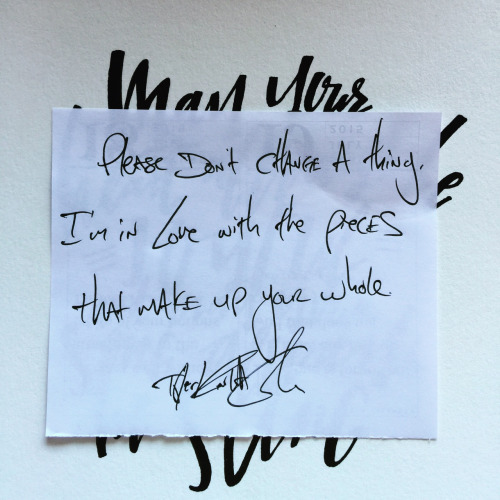 May Your
2015
Please Don't change A thing.
I'm in Love with the pieces
that make up your whole.